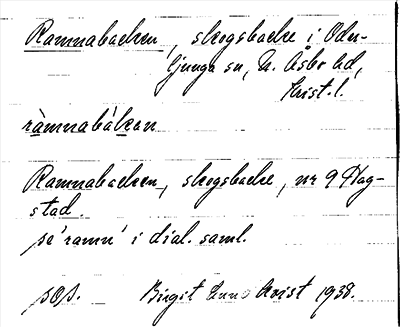 Ramnabacken, skogsbacke i Oder-
ljunga sn, N. Åsbo hd,
Krist. l.
ràmnabákan
Ramnabacken, skogsbacke, nr 9 Hag-
stad.
se 'ramn' i dial. saml.
Birgit Kvist 1938.